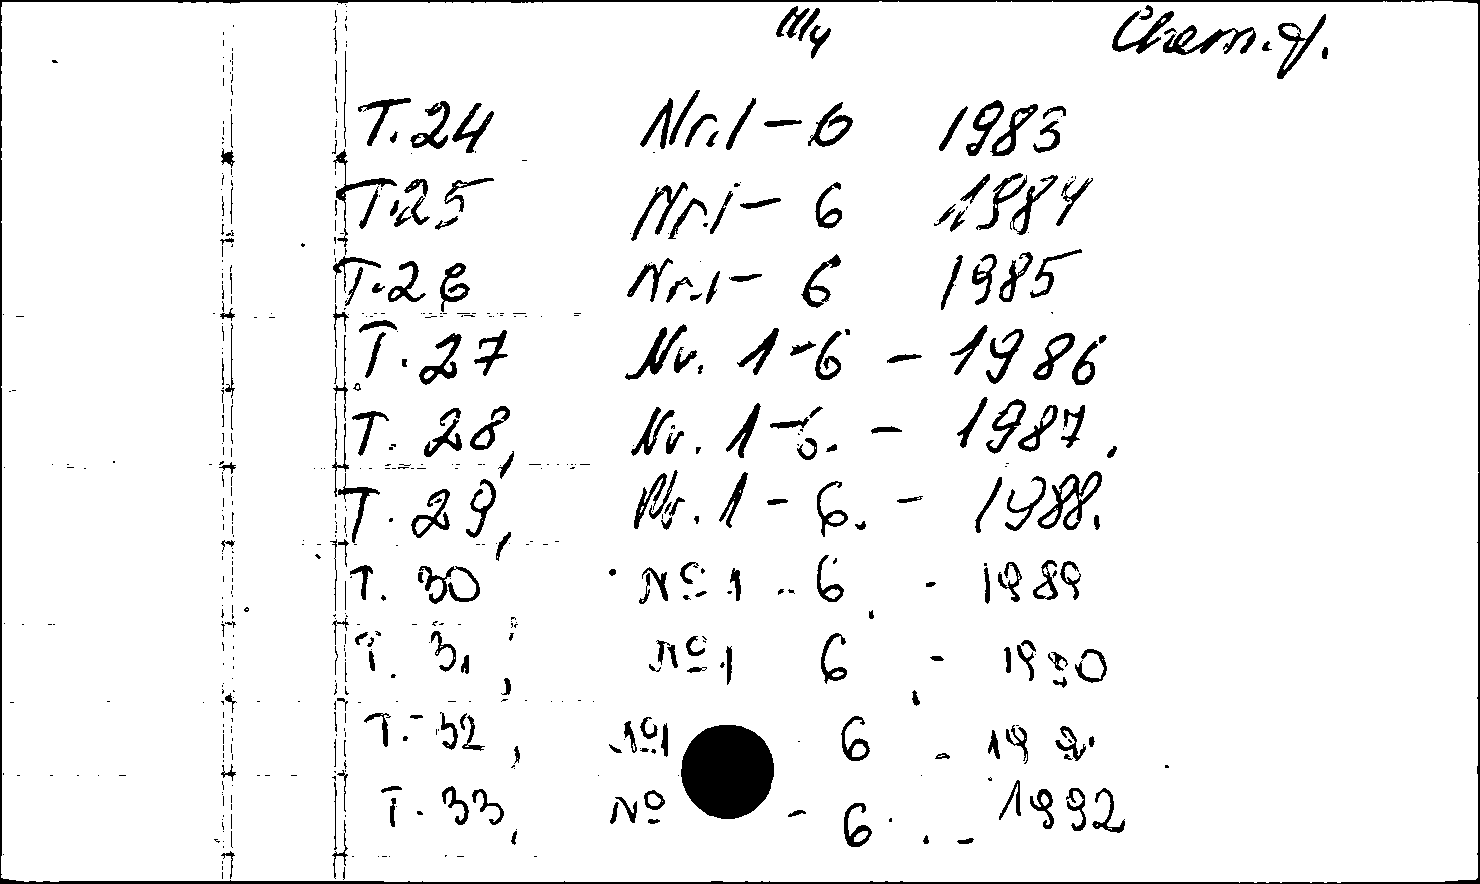 Chem. J.
T. 24 Nr. 1 - 6 1983
T. 25 Nr. 1 - 6 1984
T. 26 Nr. 1 - 6 1985
T. 27 Nr. 1 - 6 - 1986
T. 28, Nr. 1 - 6. - 1987.
T. 29, Nr. 1 - 6. - 1988.
T. 30 Nº 1 - 6, - 1989
T. 31, Nº 1 6, - 1990
T. 32, Nº 1 6 -
T. 33, Nº - 6. - 1992